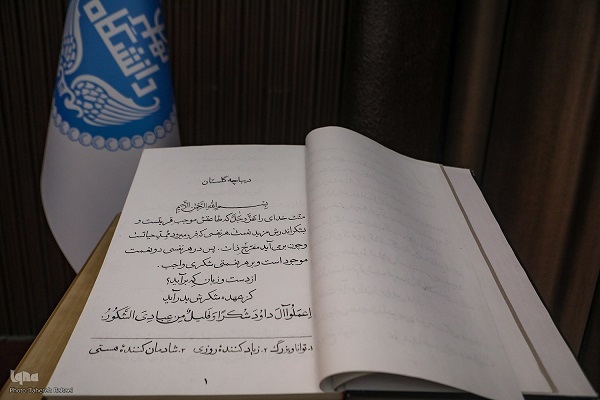 دانشگاه
دیباچه گلستان
بسم الله الرحمن الرحیم
منّت خدای را عزّ و جلّ که طاعتش موجب قربتست و
بشکر اندرش مزید نعمت. هر نفسی که فرو میرود مُمِدّ حیاتست
و چون بر می آید مفرّح ذات. پس در هر نفسی دو نعمت
موجود است و بر هر نعمتی شکری واجب.
از دست و زبان که برآید؟
کز عهده شکرش بدرآید
اِعمَلوا آلَ داوُدَ شُکراً وَ قَلیلٌ مِن عِبادیَ الشَّکُورُ.
۱. توانا و بزرگ ۲. زیاد کننده روزی ۳. شادمان کننده هستی
۱
iqna
Photo: